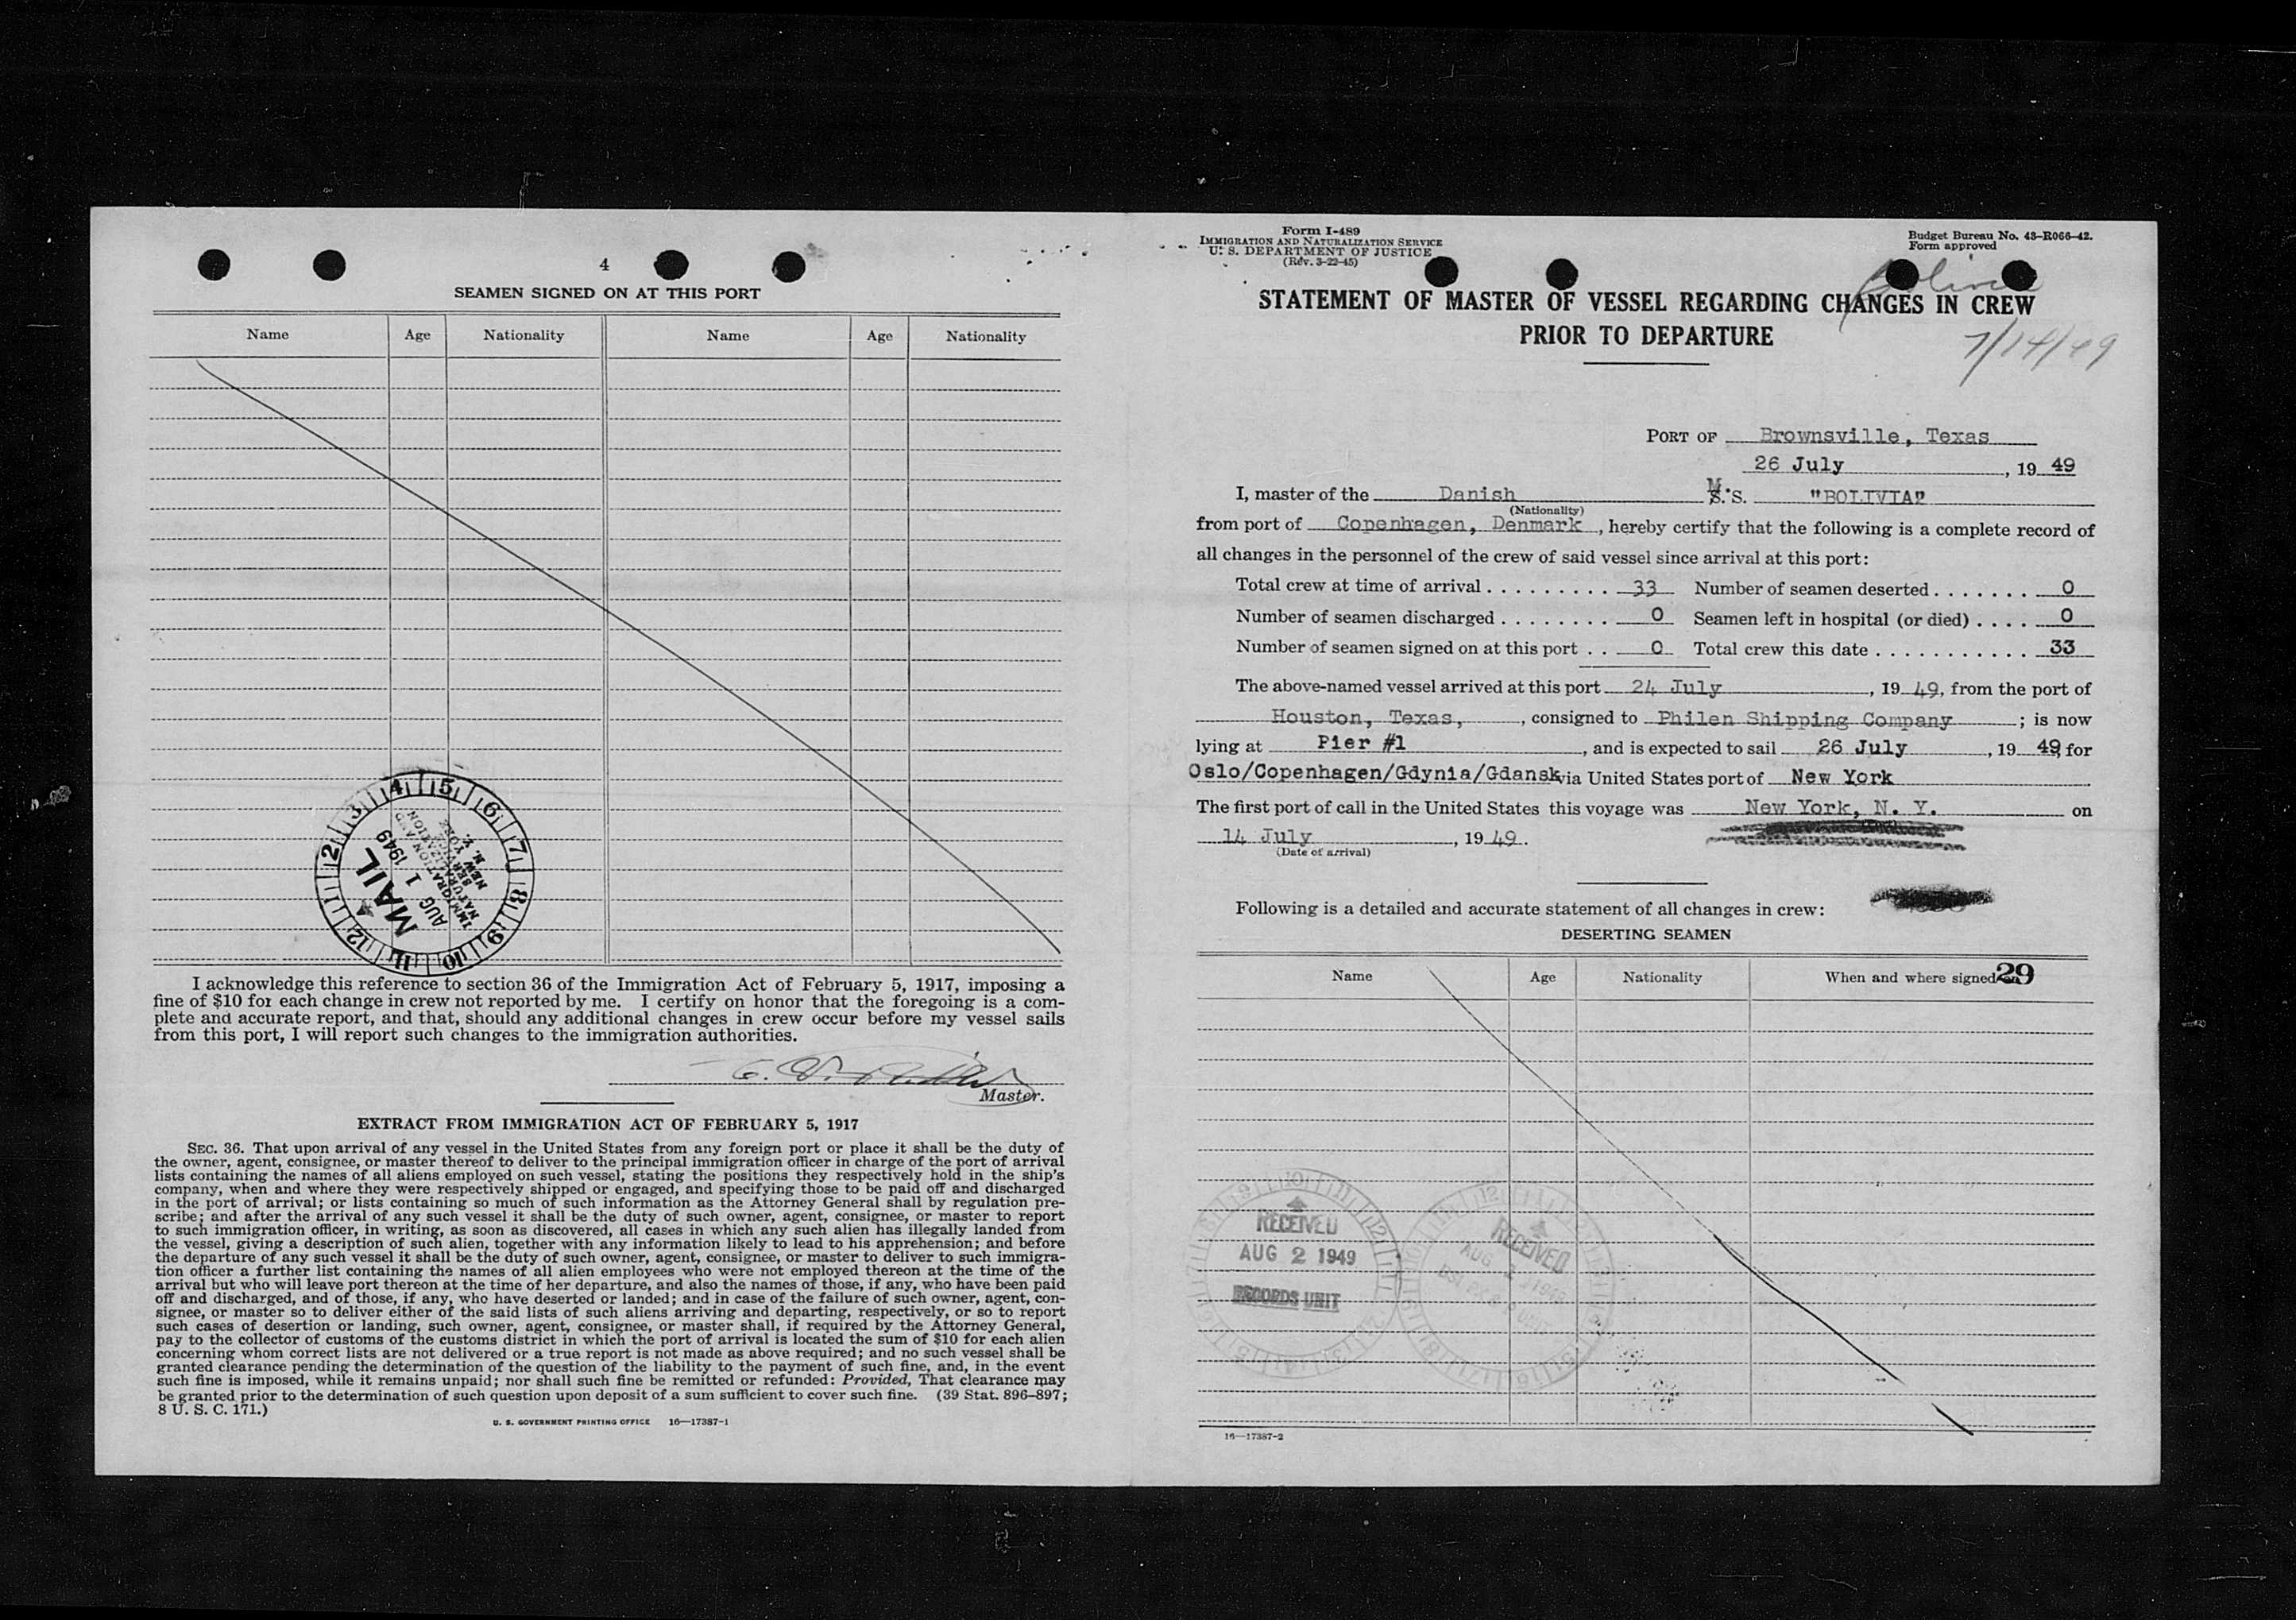 4
SEAMEN SIGNED ON AT THIS PORT
Name Age Nationality Name Age Nationality
MAIL
AUG 1 1949
IMMIGRATION AND
NATURALIZATION
SERVICE
NEW YORK
N. Y.
2 3 4 5 6 7 8 9 10 11 12 1
I acknowledge this reference to section 36 of the Immigration Act of February 5, 1917, imposing a
fine of $10 for each change in crew not reported by me. I certify on honor that the foregoing is a com-
plete and accurate report, and that, should any additional changes in crew occur before my vessel sails
from this port, I will report such changes to the immigration authorities.
Master.
EXTRACT FROM IMMIGRATION ACT OF FEBRUARY 5, 1917
SEC. 36. That upon arrival of any vessel in the United States from any foreign port or place it shall be the duty of
the owner, agent, consignee, or master thereof to deliver to the principal immigration officer in charge of the port of arrival
lists containing the names of all aliens employed on such vessel, stating the positions they respectively hold in the ship's
company, when and where they were respectively shipped or engaged, and specifying those to be paid off and discharged
in the port of arrival; or lists containing so much of such information as the Attorney General shall by regulation pre-
scribe; and after the arrival of any such vessel it shall be the duty of such owner, agent, consignee, or master to report
to such immigration officer, in writing, as soon as discovered, all cases in which any such alien has illegally landed from
the vessel, giving a description of such alien, together with any information likely to lead to his apprehension; and before
the departure of any such vessel it shall be the duty of such owner, agent, consignee, or master to deliver to such immigra-
tion officer a further list containing the names of all alien employees who were not employed thereon at the time of the
arrival but who will leave port thereon at the time of her departure, and also the names of those, if any, who have been paid
off and discharged, and of those, if any, who have deserted or landed; and in case of the failure of such owner, agent, con-
signee, or master so to deliver either of the said lists of such aliens arriving and departing, respectively, or so to report
such cases of desertion or landing, such owner, agent, consignee, or master shall, if required by the Attorney General,
pay to the collector of customs of the customs district in which the port of arrival is located the sum of $10 for each alien
concerning whom correct lists are not delivered or a true report is not made as above required; and no such vessel shall be
granted clearance pending the determination of the question of the liability to the payment of such fine, and, in the event
such fine is imposed, while it remains unpaid; nor shall such fine be remitted or refunded: Provided, That clearance may
be granted prior to the determination of such question upon deposit of a sum sufficient to cover such fine. (39 Stat. 896-897;
8 U. S. C. 171.)
U. S. GOVERNMENT PRINTING OFFICE 16—17387-1
Form I-489
IMMIGRATION AND NATURALIZATION SERVICE
U. S. DEPARTMENT OF JUSTICE
(Rev. 3-22-45)
Budget Bureau No. 43-R066-42.
Form approved
Bolivia
STATEMENT OF MASTER OF VESSEL REGARDING CHANGES IN CREW
PRIOR TO DEPARTURE
7/14/49
PORT OF Brownsville, Texas
26 July, 19 49
I, master of the Danish M. S. "BOLIVIA"
(Nationality)
from port of Copenhagen, Denmark, hereby certify that the following is a complete record of
all changes in the personnel of the crew of said vessel since arrival at this port:
Total crew at time of arrival . . . . . . . . . 33 Number of seamen deserted . . . . . . . 0
Number of seamen discharged . . . . . . . . 0 Seamen left in hospital (or died) . . . . 0
Number of seamen signed on at this port . . 0 Total crew this date . . . . . . . . . . . . 33
The above-named vessel arrived at this port 24 July, 19 49, from the port of
Houston, Texas, , consigned to Philen Shipping Company ; is now
lying at Pier #1, and is expected to sail 26 July, 19 49, for
Oslo/Copenhagen/Gdynia/Gdansk via United States port of New York
The first port of call in the United States this voyage was New York, N. Y. on
14 July, 19 49.
(Date of arrival)
Following is a detailed and accurate statement of all changes in crew:
DESERTING SEAMEN
Name Age Nationality When and where signed 29
RECEIVED
AUG 2 1949
RECORDS UNIT
RECEIVED
AUG 1949
16—17387-2